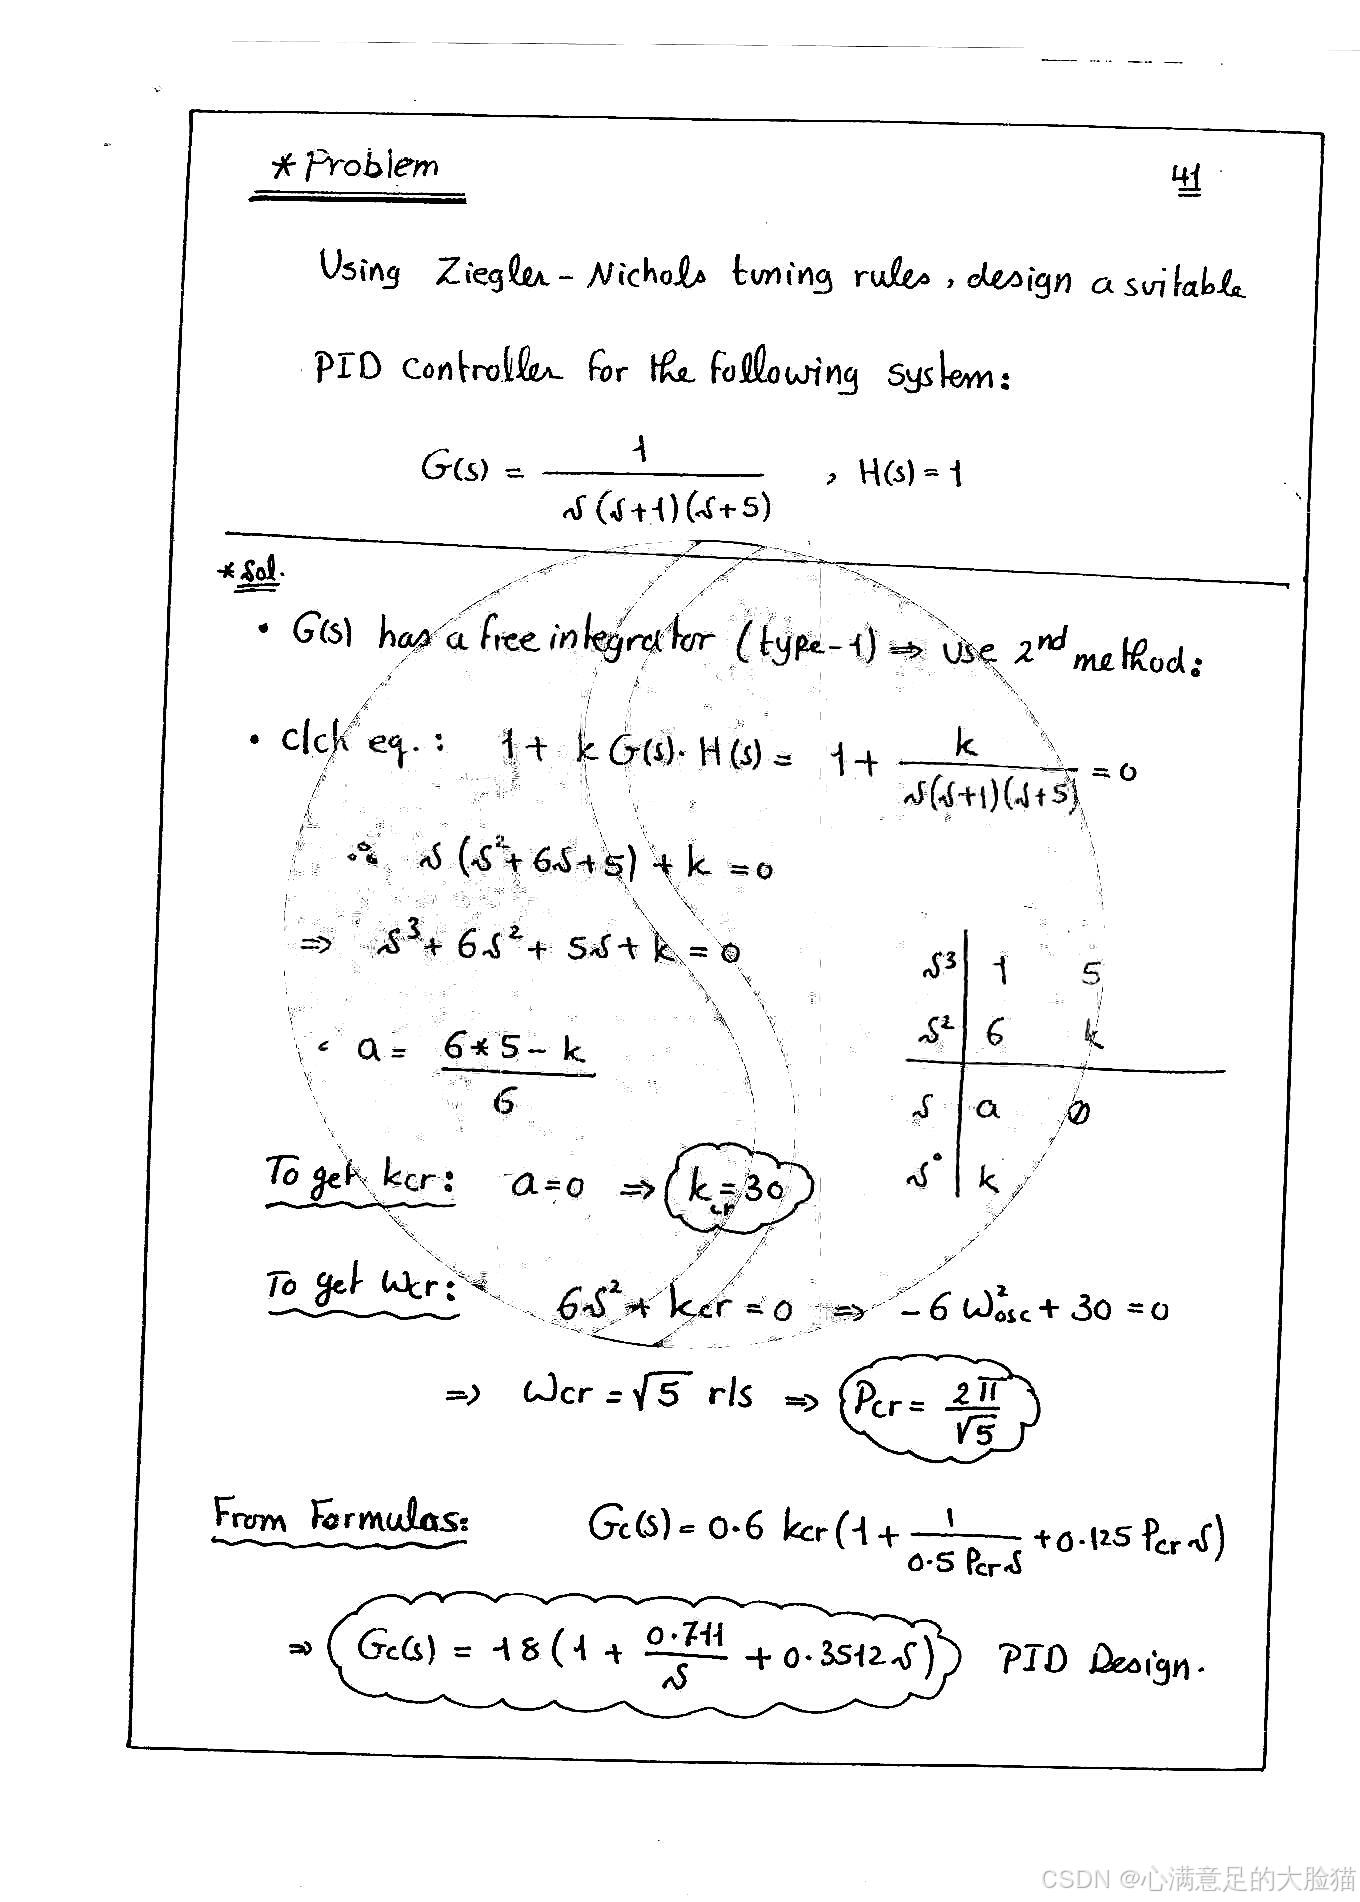 * Problem
41
Using Ziegler-Nichols tuning rules, design a suitable
PID controller for the following system:
G(s) = 1 / s(s+1)(s+5) , H(s) = 1
* Sol.
• G(s) has a free integrator (type-1) ⇒ use 2nd method:
• C/ch eq. : 1 + k G(s). H(s) = 1 + k / s(s+1)(s+5) = 0
∴ s(s²+6s+5) + k = 0
⇒ s³ + 6s² + 5s + k = 0
s³ | 1 5
s² | 6 k
s | a 0
s° | k
a = 6*5 - k / 6
To get kcr: a=0 ⇒ kcr = 30
To get wcr: 6s² + kcr = 0 ⇒ -6 ω²osc + 30 = 0
⇒ wcr = √5 r/s ⇒ Pcr = 2π / √5
From Formulas: Gc(s) = 0.6 kcr (1 + 1 / 0.5 Pcr s + 0.125 Pcr s)
⇒ Gc(s) = 18 (1 + 0.711 / s + 0.3512 s) PID Design.
CSDN @心满意足的大脸猫